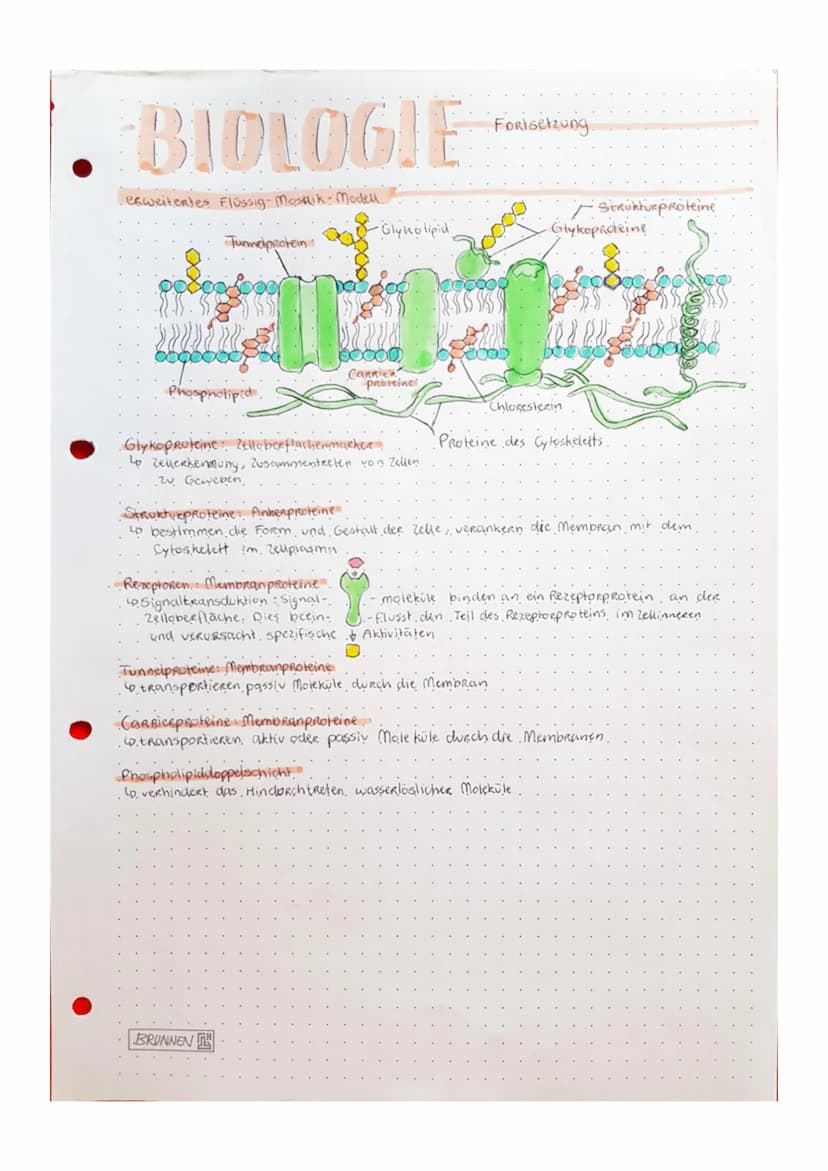 BIOLOGIE Fortsetzung
erweitertes Flüssig-Mosaik-Modell
Strukturproteine
Glykolipid
Glykoproteine
Tunnelprotein
Carrier
proteine
Phospholipid
Chloresterin
Proteine des Cytoskeletts
Glykoproteine: Zelloberflächenmarker
↳ Zellerkennung, Zusammentreten von Zellen
zu Geweben
Strukturproteine: Ankerproteine
↳ bestimmen die Form und Gestalt der Zelle, verankern die Membran mit dem
Cytoskelett im Zellplasma
Rezeptoren: Membranproteine
↳ Signaltransduktion: Signal- - moleküle binden an ein Rezeptorprotein an der
Zelloberfläche. Dies beein- - flusst den Teil des Rezeptorproteins im Zellinneren
und verursacht spezifische Aktivitäten
Tunnelproteine: Membranproteine
↳ transportieren passiv Moleküle durch die Membran
Carrierproteine: Membranproteine
↳ transportieren aktiv oder passiv Moleküle durch die Membranen
Phospholipiddoppelschicht
↳ verhindert das Hindurchtreten wasserlöslicher Moleküle
BRUNNEN